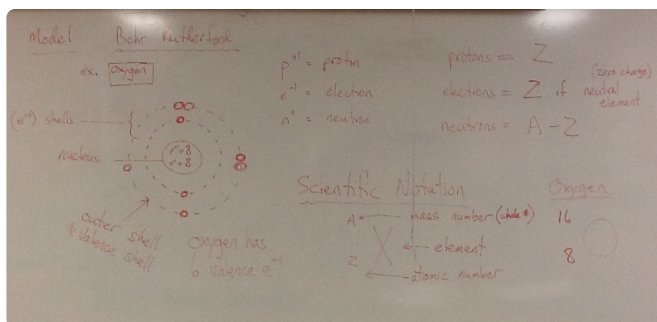 Model Bohr Rutherford
ex. oxygen
(e⁻¹) shells
nucleus
p⁺¹=8
n°=8
outer shell
valence shell
oxygen has
6 valence e⁻¹
p⁺¹ = proton
e⁻¹ = electron
n° = neutron
protons = Z
electrons = Z if neutral element
(zero charge)
neutrons = A - Z
Scientific Notation
A mass number (whole #)
X element
Z atomic number
Oxygen
16
8